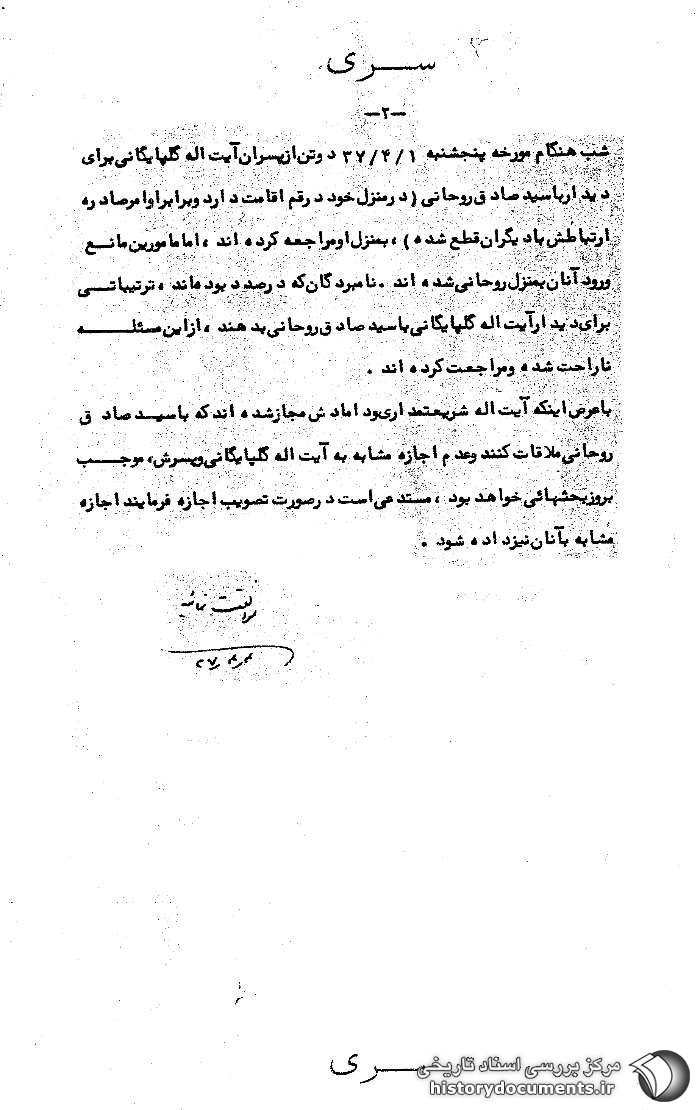 ســـری
-۲-
شب هنگام مورخه پنجشنبه ۳۷/۴/۱ دوتن ازپسران آیت اله گلپایگانی برای
دیدارباسید صادق روحانی (درمنزل خود درقم اقامت دارد وبرابراوامرصادره
ارتباطش بادیگران قطع شده)، بمنزل اومراجعه کرده اند ، امامامورین مانع
ورود آنان بمنزل روحانی شده اند .نامبردگان که درصدد بوده اند ، ترتیباتـــی
برای دیدارآیت اله گلپایگانی باسید صادق روحانی بدهند ، ازاین مسئلـــــه
ناراحت شده ومراجعت کرده اند .
باعرض اینکه آیت اله شریعتمداری بود امادش مجازشده اند که باسیـــد صادق
روحانی ملاقات کنند وعدم اجازه مشابه به آیت اله گلپایگانی وپسرش، موجـــب
بروزبحثهائی خواهد بود ، مستدعی است درصورت تصویب اجازه فرمایند اجازه
مشابه بآنان نیزداده شود .
موافقت نمائید
ســـری
مرکز بررسی اسناد تاریخی
historydocuments.ir